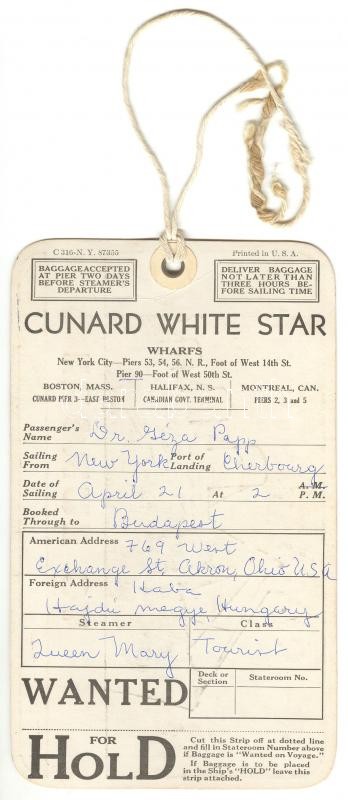 C 316-N. Y. 87355 Printed in U. S. A.
BAGGAGE ACCEPTED
AT PIER TWO DAYS
BEFORE STEAMER'S
DEPARTURE
DELIVER BAGGAGE
NOT LATER THAN
THREE HOURS BE-
FORE SAILING TIME
CUNARD WHITE STAR
WHARFS
New York City—Piers 53, 54, 56. N. R., Foot of West 14th St.
Pier 90—Foot of West 50th St.
BOSTON, MASS. HALIFAX, N. S. MONTREAL, CAN.
CUNARD PIER 3—EAST BOSTON CANADIAN GOVT. TERMINAL PIERS 2, 3 and 5
Passenger's
Name Dr. Géza Papp
Sailing
From New York Port of
Landing Cherbourg
Date of
Sailing April 21 At 2 A. M.
P. M.
Booked
Through to Budapest
American Address 769 West
Exchange St, Akron, Ohio U.S.A
Foreign Address Kaba
Hajdú megye, Hungary
Steamer Class
Queen Mary Tourist
WANTED
Deck or
Section
Stateroom No.
FOR
HOLD
Cut this Strip off at dotted line
and fill in Stateroom Number above
if Baggage is "Wanted on Voyage."
If Baggage is to be placed
in the Ship's "HOLD" leave this
strip attached.